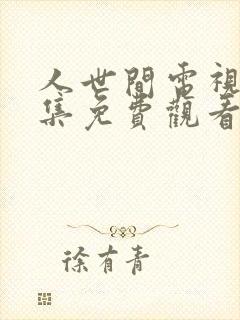 人世間電視
集免費觀看
徐有青